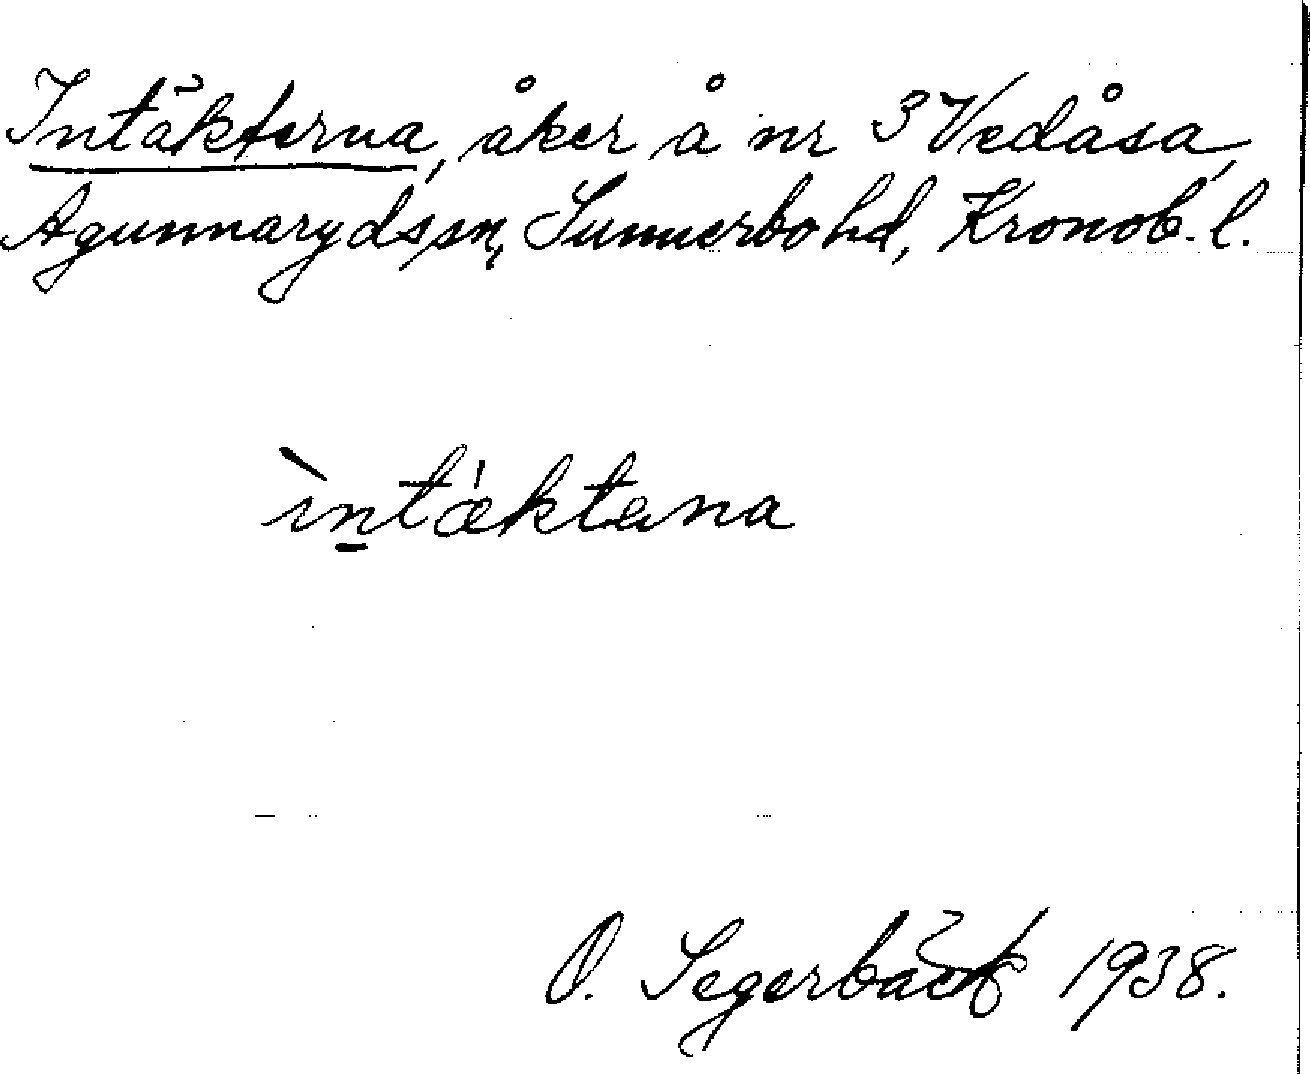 Intäkterna, åker å nr 3 Vedåsa,
Agunnarydssn, Sunnerbo hd, Kronob. l.
ìn̲tæ'ktəna
O. Segerbäck 1938.